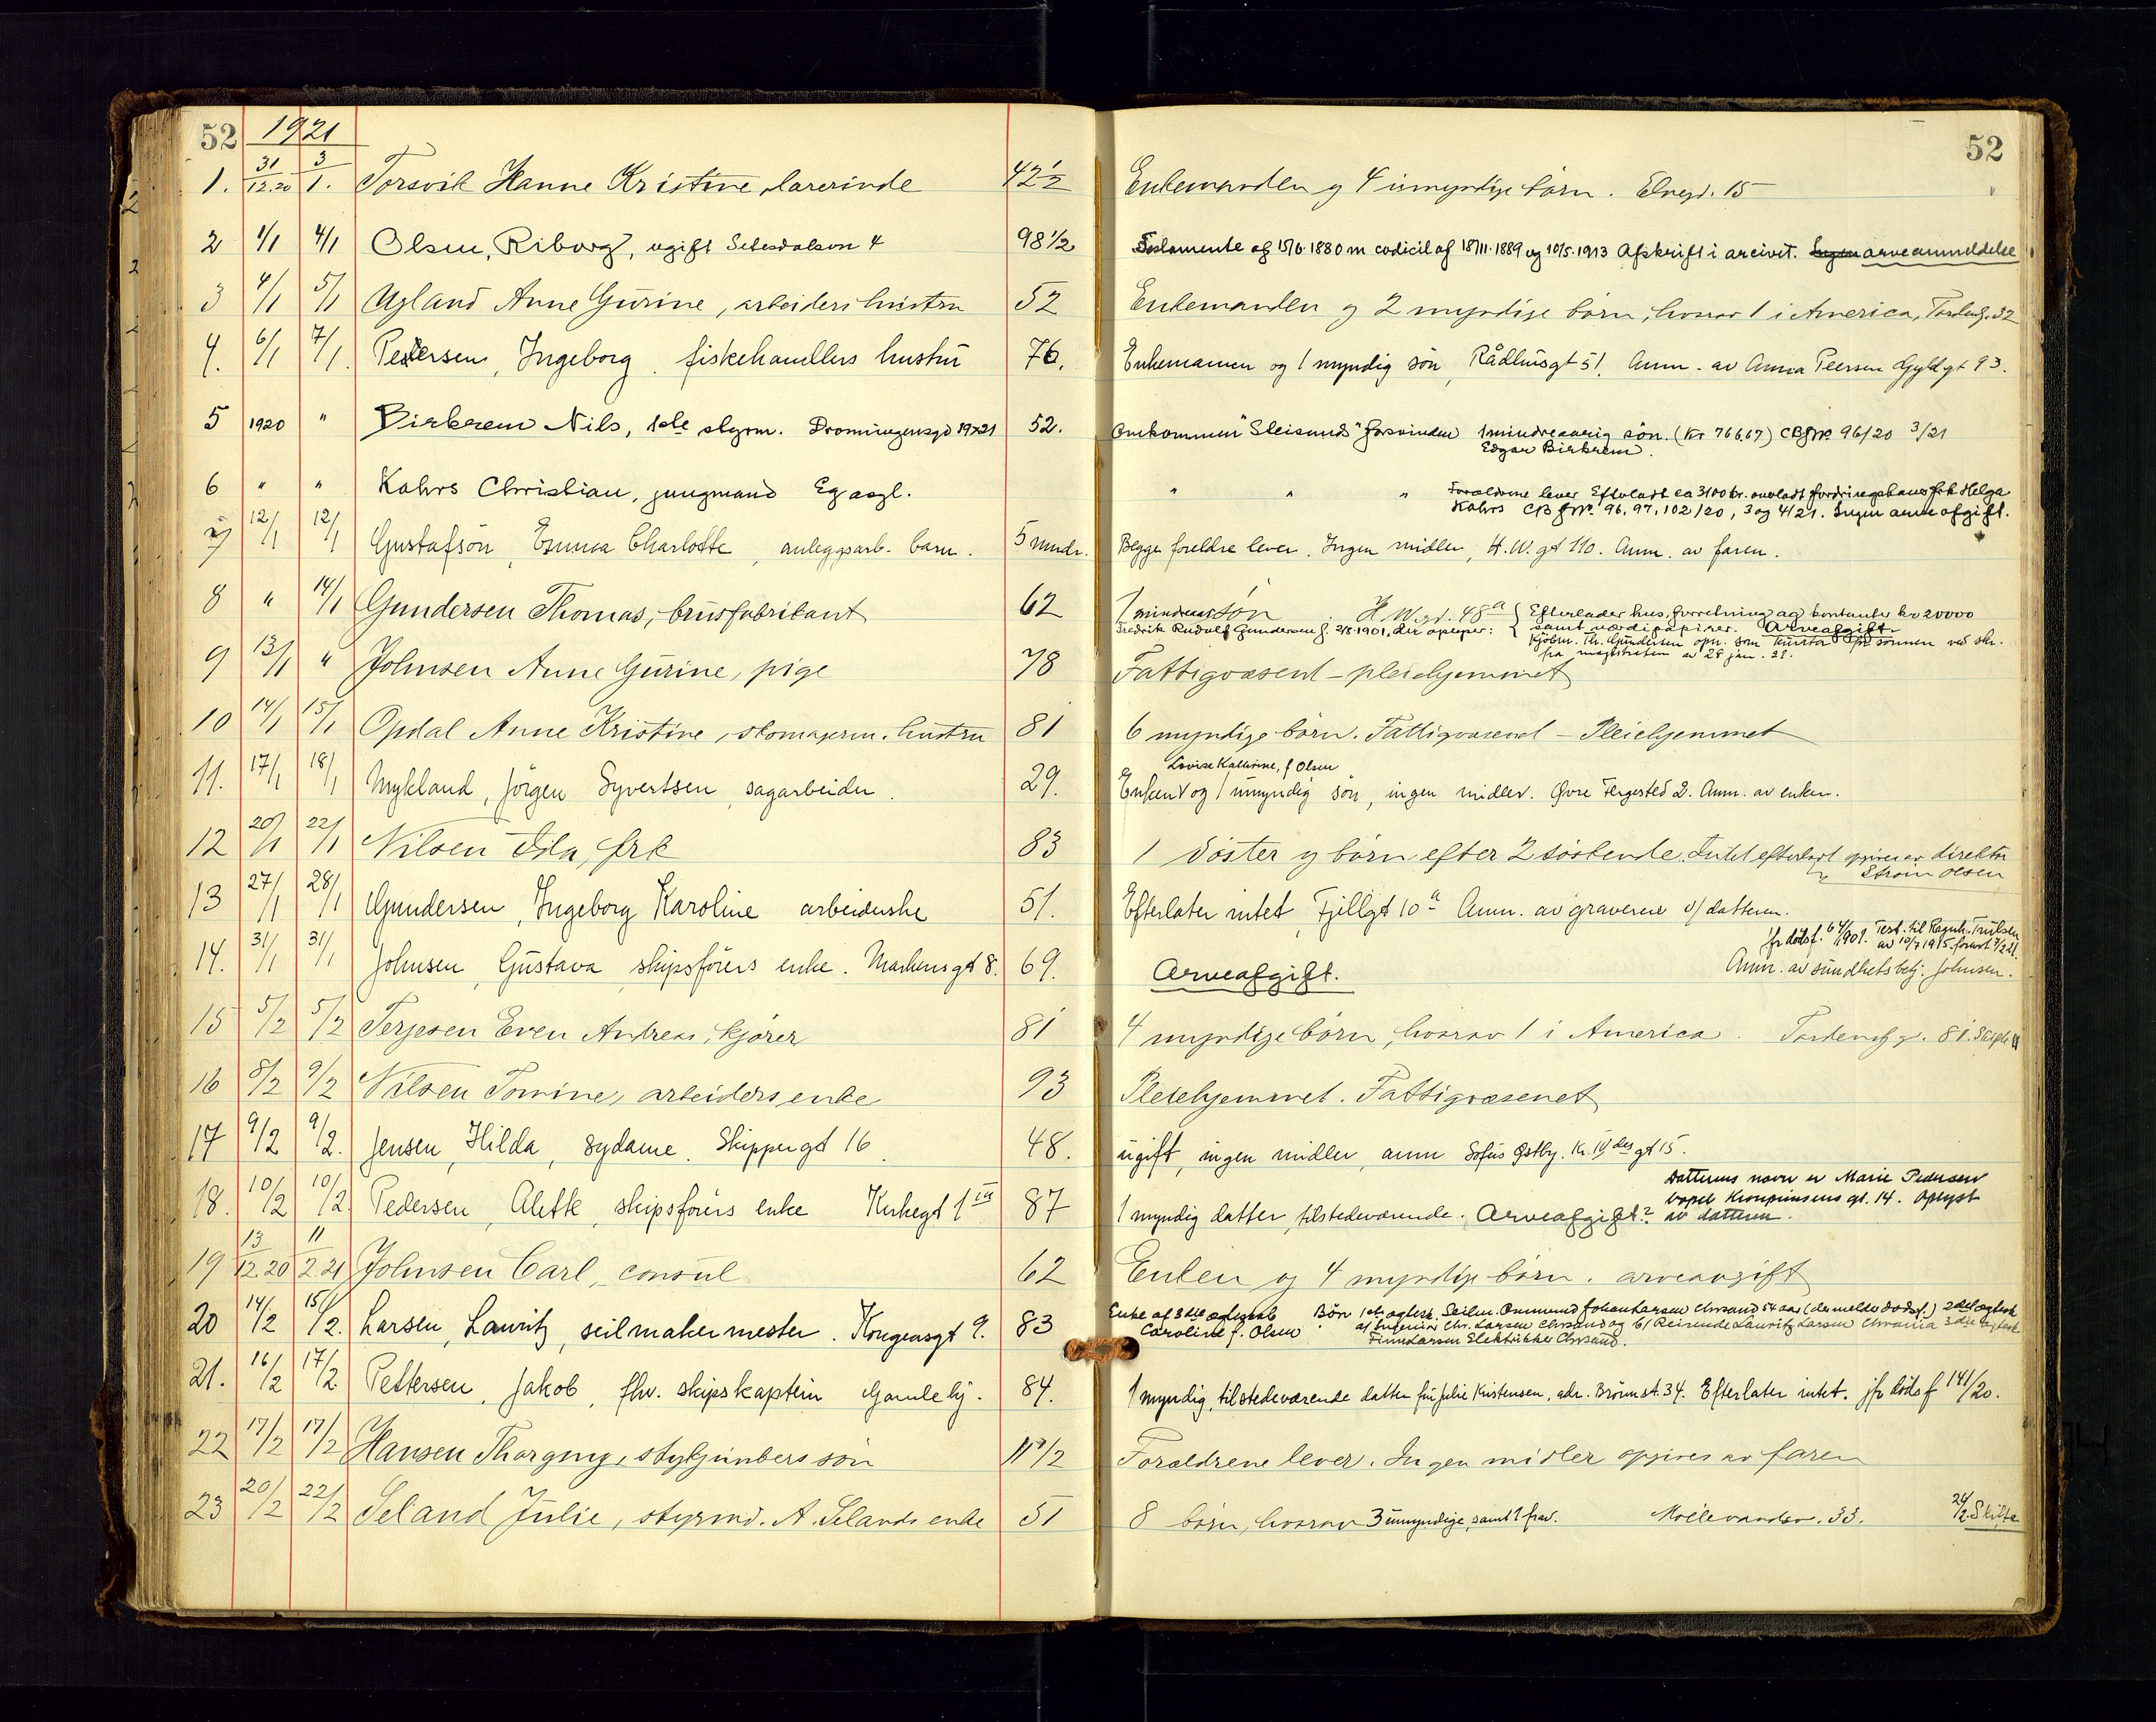 52 1921 52
1. 31/12.20 3/1. Torsvik Hanne Kristine, lærerinde 42½ Enkemanden og 4 umyndige børn. Elvegd. 15
2 1/1 4/1 Olsen, Riborg, ugift Setesdalsvn 4 98 1/2 Testamente af 15/6 1880 m codicil af 18/11 1889 og 10/5.1913 Afskrift i arcivet. Ingen arveanmeldelse
3 4/1 5/1 Ugland Anne Gurine, arbeiders hustru 52 Enkemanden og 2 myndige børn, hvorav 1 i America, Tordensg. 32
4. 6/1 7/1. Pedersen, Ingeborg. fiskehandlers hustru 76. Enkemannen og 1 myndig søn, Rådhusgt 51. Anm. av Anna Peersen Gyldgt 93.
5 1920 " Birkrem Nils, 1ste styrm. Dronningensgd 19x21 52. Omkommen "Sleisund" forsvinden 1 mindreaarig søn. (Kr 766.67) CBJNr. 96/20 3/21
Edgar Birkrem.
6 " " Kahrs Christian, jungmand Eg asyl. " " " Forældrene lever Efterladt ca 3100 kr. anvladt fordringshaver frk Helga
Kahrs CBJNr. 96, 97, 102/20, 3 og 4/21. Ingen arve afgift.
7 12/1 12/1 Gustafson, Emma Charlotte, anleggsarb. barn. 5 mndr. Begge foreldre lever. Ingen midler, H.W.gt 110. Anm. av faren.
8 " 14/1 Gundersen Thomas, brusfabrikant 62 1 mindreaar søn H W.gd. 48a Efterlader hus, forretning og kontanter kr 20000
Fredrik Rudolf Gundersen f. 2/8.1901, der opløper: samt værdipapirer. Arveafgift.
Kjøbm. Th. Gundersen opn. som kurator for sønnen ved skr.
fra magistraten av 28 jan. 21.
9 13/1 " Johnsen Anne Gurine, pige 78 Fattigvæsent - pleiehjemmet
10 14/1 15/1 Opdal Anne Kristine, skomagerm. hustru 81 6 myndige børn. Fattigvæsenet - Pleiehjemmet
Lovise Kathrine, f Olsen
11. 17/1 18/1 Mykland, Jørgen Syvertsen, sagarbeider. 29. Enken og 1 umyndig søn, ingen midler. Øvre Tergested 2. Anm. av enken.
12 20/1 22/1 Nilsen Ida, frk 83 1 søster og børn efter 2 søskende. Intet efterladt opgives av direktør
Strøm Olsen
13 27/1 28/1 Gundersen, Ingeborg Karoline arbeiderske 51. Efterlater intet, Fjellgt 10a Anm. av graveren v/ datteren.
jfr dødsf. 64/1901. Test. til Ragnh. Trulsen
av 10/7 1915. forevist 7/2 21.
14. 31/1 31/1 Johnsen, Gustava skipsførers enke. Markensgt 8. 69. Arveafgift. Anm. av sundhetsbetj. Johnsen.
15 5/2 5/2 Terjesen Even Andreas, kjører 81 4 myndige børn, hvorav 1 i America. Tordenskg. 81.
16 8/2 9/2 Nilsen Tomine, arbeiders enke 93 Pleiehjemmet. Fattigvæsenet
17 9/2 9/2. Jensen, Hilda, sydame. Skippergt 16 48. ugift, ingen midler, anm Sofus Østby. Kr. IV des gt 15.
Datterens navn er Marie Pedersen
bopel Kronprinsens gt. 14. Oplyst
18. 10/2 10/2. Pedersen, Alette, skipsførers enke Kirkegt 1 87 1 myndig datter, tilstedeværende. Arveafgift? av datteren.
19 13/12.20 11/2.21 Johnsen Carl, consul 62 Enken og 4 myndige børn. arveavgift
20 14/2 15/2. Larsen, Lauritz, seilmakermester. Kongensgt 9. 83 Enke af 3die ægteskab Børn 1ste ægtesk. Seilm. Ommund Johan Larsen Chrsand 54 aar (der melder dødsf.) 2det ægtesk
Caroline f. Olsen a/ Ingeniør Chr. Larsen Chrsand og b/ Reisende Lauritz Larsen Chrania 3die ægtesk
Finn Larsen Elektriker Chrsand.
21. 16/2 17/2 Pettersen, Jakob, fhv. skipskaptein Gamlehj. 84. 1 myndig, tilstedeværende datter fru Julie Kristensen, adr. Brønnst. 34. Efterlater intet. jfr dødsf 141/20.
22 17/2 17/2 Hansen Thorgny, stykjunkers søn 11 1/2 Forældrene lever. Ingen midler opgives av faren
23 20/2 22/2 Seland Julie, styrmd. A. Selands enke 51 8 børn, hvorav 3 umyndige, samt 1 frav. Møllevandsv. 33. 24/2 Skifte